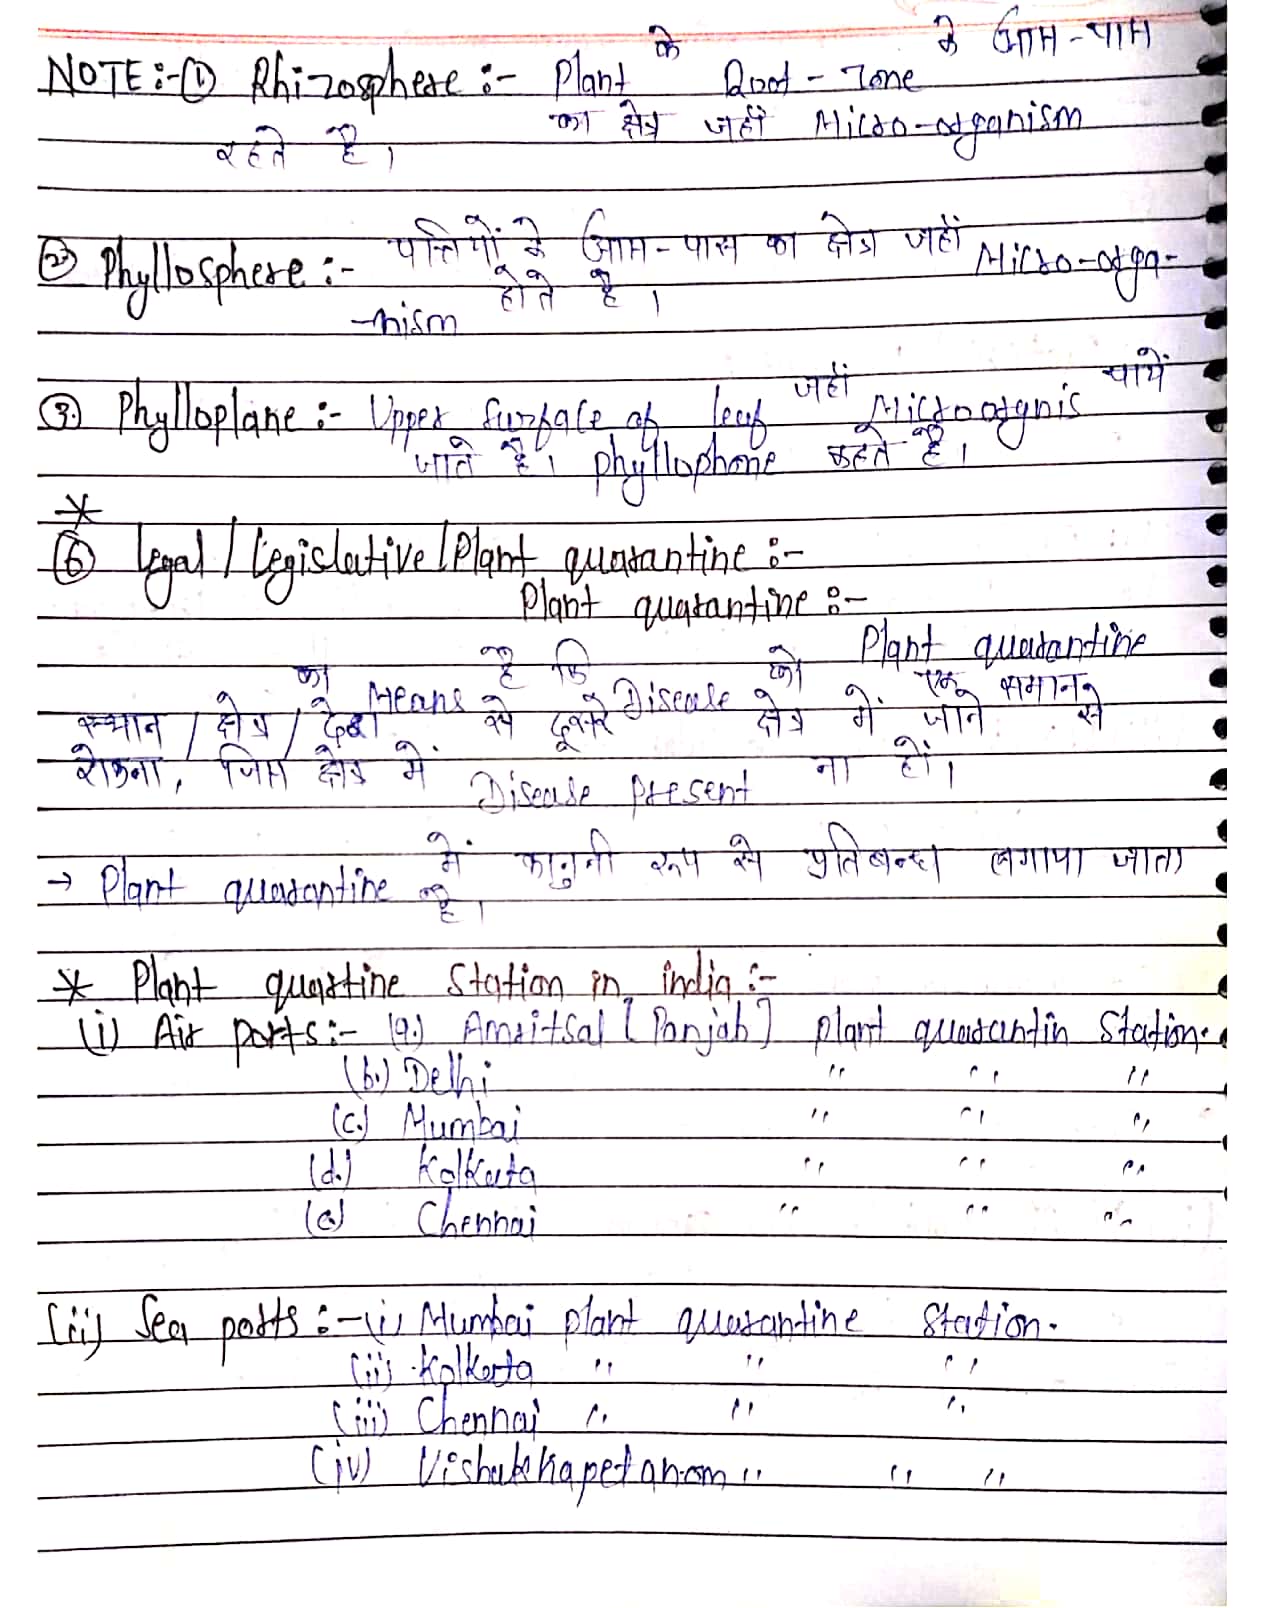 NOTE:-① Rhizosphere :- Plant के Root - Zone के आस-पास
का क्षेत्र जहाँ Micro-organism
रहते है।
② Phyllosphere :- पत्तियों के आस-पास का क्षेत्र जहाँ Micro-orga-
-nism होते है।
③. Phylloplane :- Upper Surface of leaf जहाँ Microorgnis पायें
जाते है। phyllophone कहते है।
*
⑥ Legal / Legislative / Plant quarantine :-
Plant quarantine :-
Plant quarantine
का Means है कि Disease को एक समान
स्थान / क्षेत्र / देश से दूसरे क्षेत्र में जाने से
रोकना, जिस क्षेत्र में Disease present ना हों।
→ Plant quarantine में कानुनी रूप से प्रतिबन्ध लगाया जाता
है।
* Plant quartine Station in india :-
(i) Air ports :- (a.) Amritsal [Panjab] plant quarantin Station.
(b.) Delhi " " "
(c.) Mumbai " " "
(d.) Kolkata " " "
(e) Chennai " " "
(ii) Sea ports :- (i) Mumbai plant quarantine Station.
(ii) Kolkata " " "
(iii) Chennai " " "
(iv) Vishakhapetanam " " "